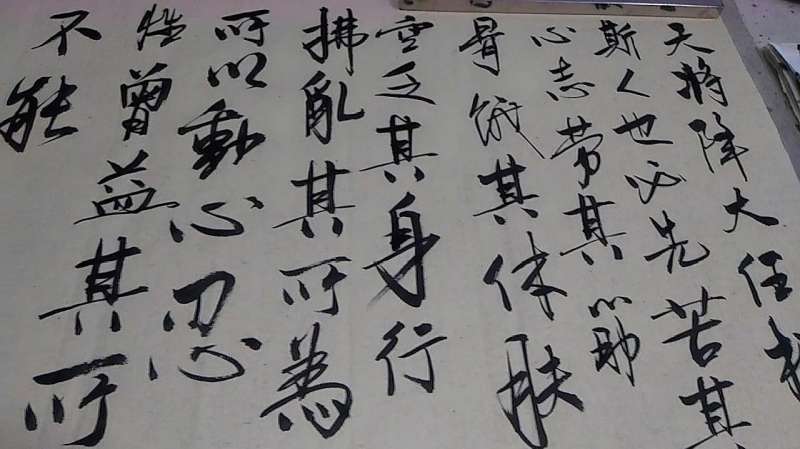 天將降大任於
斯人也必先苦其
心志劳其筋
骨餓其体肤
空乏其身行
拂亂其所為
所以動心忍
性曾益其所
不能